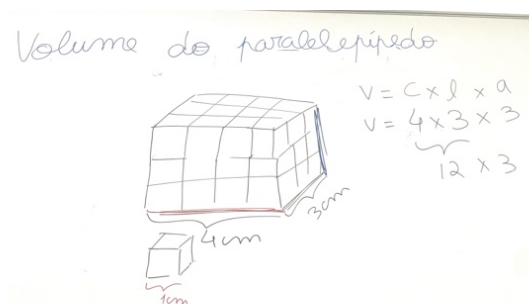 Volume do paralelepípedo
V = C x l x a
V = 4 x 3 x 3
12 x 3
3cm
4cm
1cm